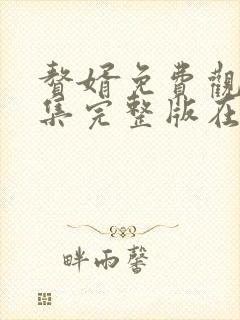 贅婿免費觀
集完整版在
畔雨馨